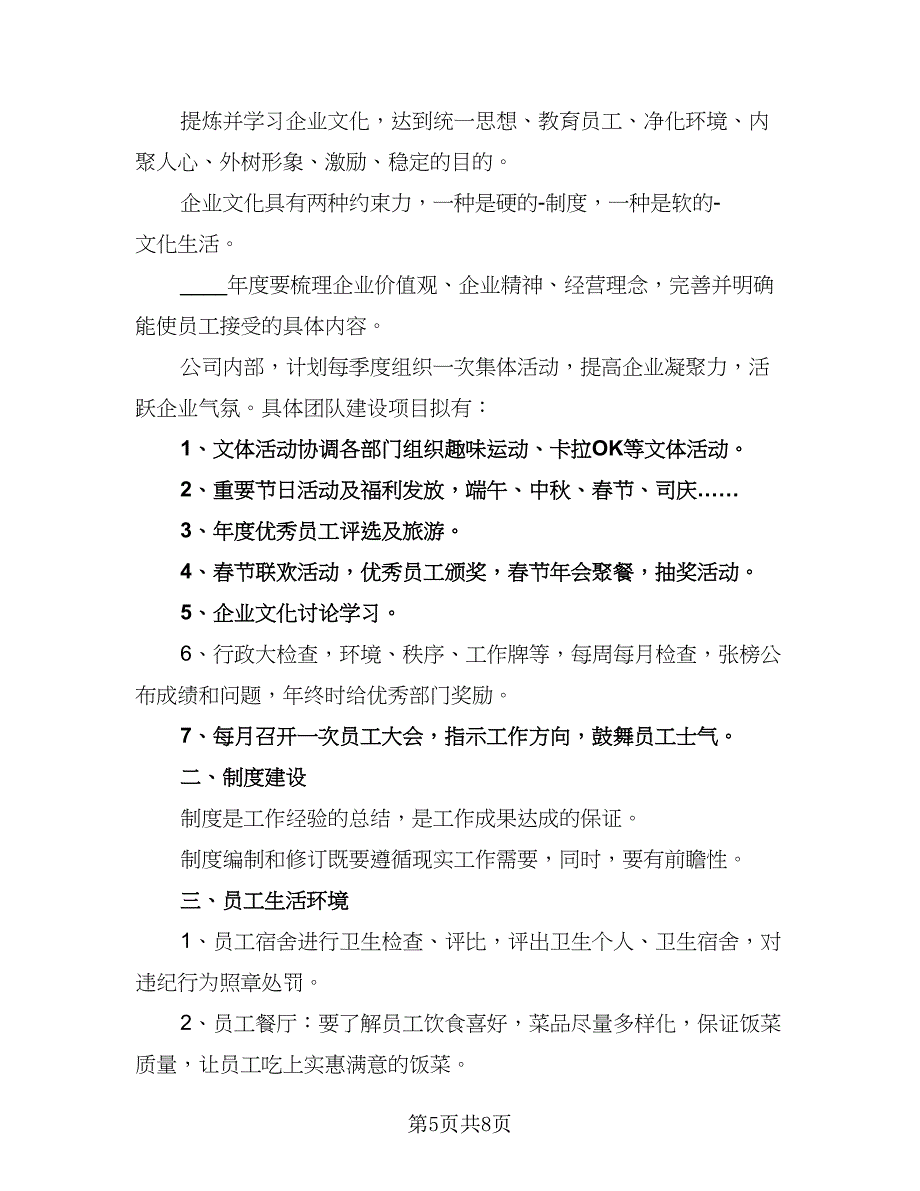 提炼并学习企业文化，达到统一思想、教育员工、净化环境、内
聚人心、外树形象、激励、稳定的目的。
企业文化具有两种约束力，一种是硬的-制度，一种是软的-
文化生活。
____年度要梳理企业价值观、企业精神、经营理念，完善并明确
能使员工接受的具体内容。
公司内部，计划每季度组织一次集体活动，提高企业凝聚力，活
跃企业气氛。具体团队建设项目拟有：
1、文体活动协调各部门组织趣味运动、卡拉OK等文体活动。
2、重要节日活动及福利发放，端午、中秋、春节、司庆……
3、年度优秀员工评选及旅游。
4、春节联欢活动，优秀员工颁奖，春节年会聚餐，抽奖活动。
5、企业文化讨论学习。
6、行政大检查，环境、秩序、工作牌等，每周每月检查，张榜公
布成绩和问题，年终时给优秀部门奖励。
7、每月召开一次员工大会，指示工作方向，鼓舞员工士气。
二、制度建设
制度是工作经验的总结，是工作成果达成的保证。
制度编制和修订既要遵循现实工作需要，同时，要有前瞻性。
三、员工生活环境
1、员工宿舍进行卫生检查、评比，评出卫生个人、卫生宿舍，对
违纪行为照章处罚。
2、员工餐厅：要了解员工饮食喜好，菜品尽量多样化，保证饭菜
质量，让员工吃上实惠满意的饭菜。
第5页共8页